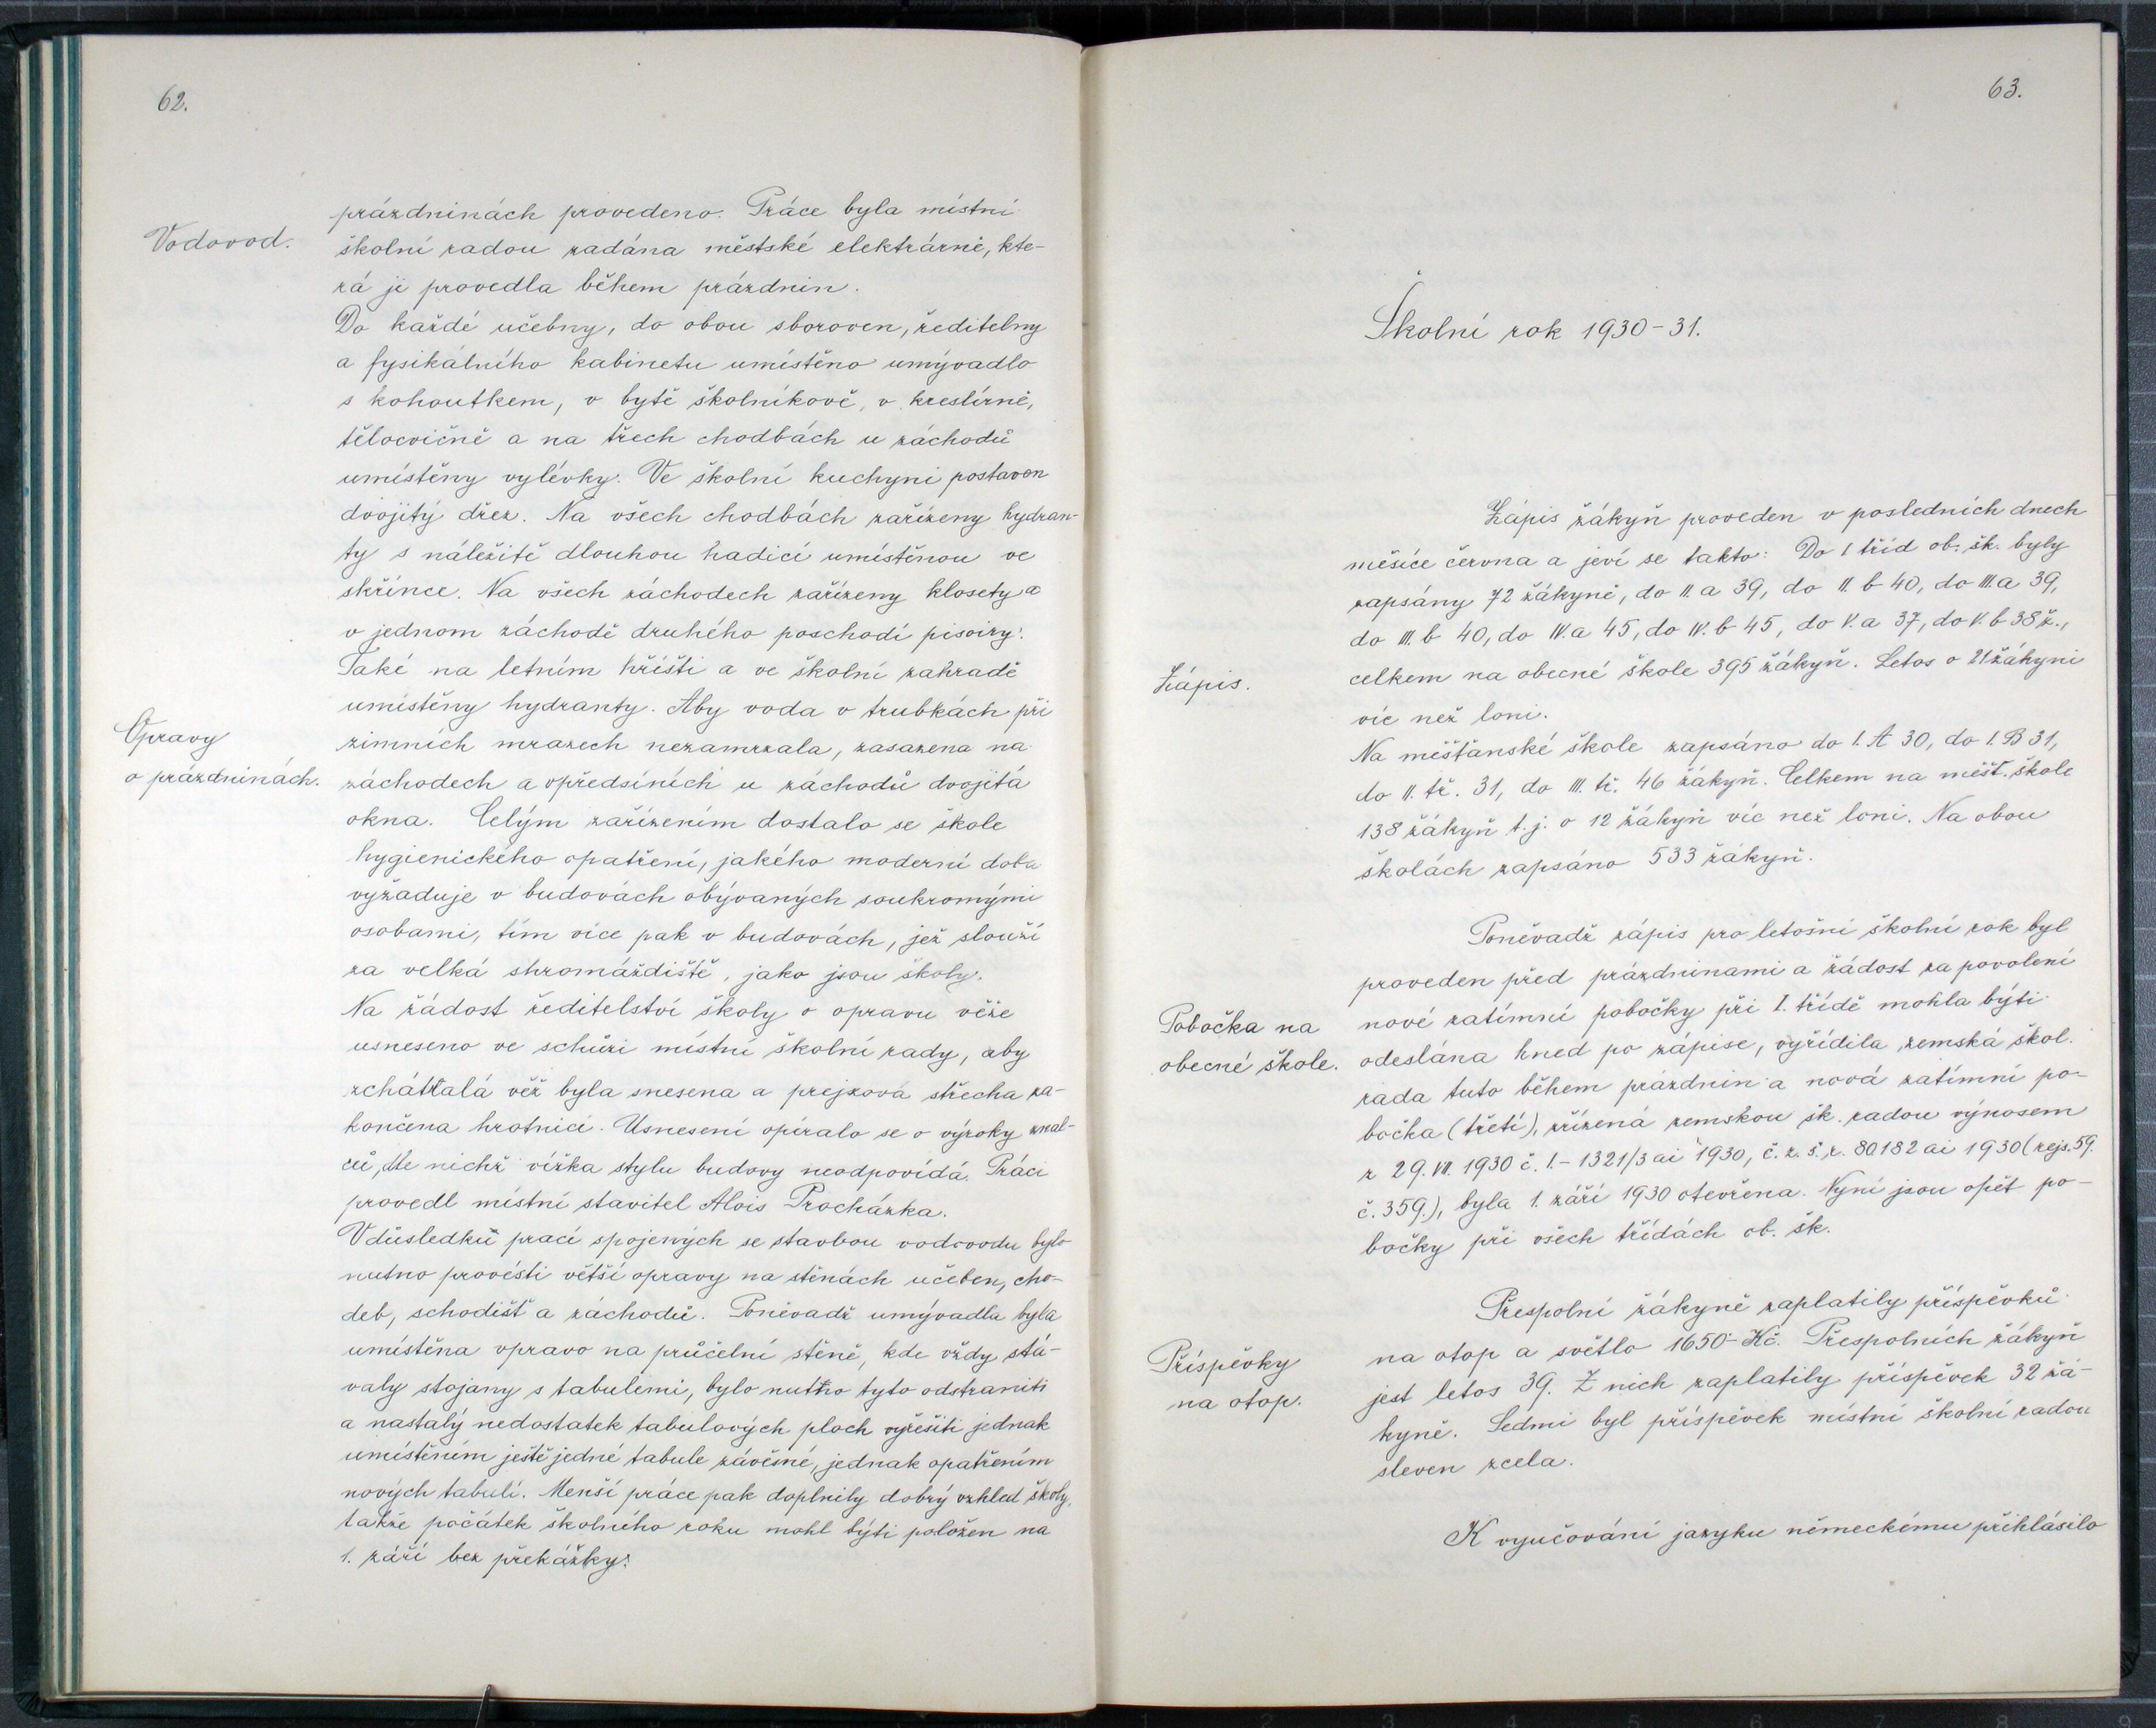 62.
Vodovod.
prázdninách provedeno. Práce byla místní
školní radou zadána městské elektrárně, kte-
rá ji provedla během prázdnin.
Do každé učebny, do obou sboroven, ředitelny
a fysikálního kabinetu umístěno umývadlo
s kohoutkem, v bytě školníkově, v kreslírně,
tělocvičně a na třech chodbách u záchodů
umístěny vylévky. Ve školní kuchyni postaven
dvojitý dřez. Na všech chodbách zařízeny hydran-
ty s náležitě dlouhou hadicí umístěnou ve
skřínce. Na všech záchodech zařízeny klosety a
v jednom záchodě druhého poschodí pisoiry.
Také na letním hřišti a ve školní zahradě
umístěny hydranty. Aby voda v trubkách při
Opravy
o prázdninách.
zimních mrazech nezamrzala, zasazena na
záchodech a vpředsíních u záchodů dvojitá
okna. Celým zařízením dostalo se škole
hygienického opatření, jakého moderní doba
vyžaduje v budovách obývaných soukromými
osobami, tím více pak v budovách, jež slouží
za velká shromáždiště, jako jsou školy.
Na žádost ředitelství školy o opravu věže
usneseno ve schůzi místní školní rady, aby
zchátralá věž byla snesena a prejzová střecha za-
končena hrotnicí. Usnesení opíralo se o výroky znal-
ců, dle nichž vížka stylu budovy neodpovídá. Práci
provedl místní stavitel Alois Procházka.
Vdůsledků prací spojených se stavbou vodovodu bylo
nutno provésti větší opravy na stěnách učeben, cho-
deb, schodišť a záchodů. Poněvadž umývadla byla
umístěna vpravo na průčelní stěně, kde vždy stá-
valy stojany s tabulemi, bylo nutno tyto odstraniti
a nastalý nedostatek tabulových ploch vyřešiti jednak
umístěním ještě jedné tabule závěsné, jednak opatřením
nových tabulí. Menší práce pak doplnily dobrý vzhled školy,
takže počátek školního roku mohl býti položen na
1. září bez překážky.
63.
Školní rok 1930-31.
Zápis žákyň proveden v posledních dnech
měsíce června a jeví se takto: Do I tříd ob. šk. byly
zapsány 72 žákyně, do II. a 39, do II. b 40, do III. a 39,
do III. b 40, do IV. a 45, do IV. b 45, do V. a 37, do V. b 38 ž.,
Zápis.
celkem na obecné škole 395 žákyň. Letos o 21 žákyni
víc než loni.
Na měšťanské škole zapsáno do I. A 30, do I. B 31,
do II. tř. 31, do III. tř. 46 žákyň. Celkem na měšť. škole
138 žákyň t. j. o 12 žákyň víc než loni. Na obou
školách zapsáno 533 žákyň.
Poněvadž zápis pro letošní školní rok byl
proveden před prázdninami a žádost za povolení
Pobočka na
obecné škole.
nové zatímní pobočky při I. třídě mohla býti
odeslána hned po zápise, vyřídila zemská škol.
rada tuto během prázdnin a nová zatímní po-
bočka (třetí), zřízená zemskou šk. radou výnosem
z 29. VII. 1930 č. I.-1321/3 ai 1930, č. z. š. r. 80.182 ai 1930 (rejs. 59.
č. 359.), byla 1. září 1930 otevřena. Nyní jsou opět po-
bočky při všech třídách ob. šk.
Přespolní žákyně zaplatily příspěvků
Příspěvky
na otop.
na otop a světlo 1650.- Kč. Přespolních žákyň
jest letos 39. Z nich zaplatily příspěvek 32 žá-
kyně. Sedmi byl příspěvek místní školní radou
sleven zcela.
K vyučování jazyku německému přihlásilo